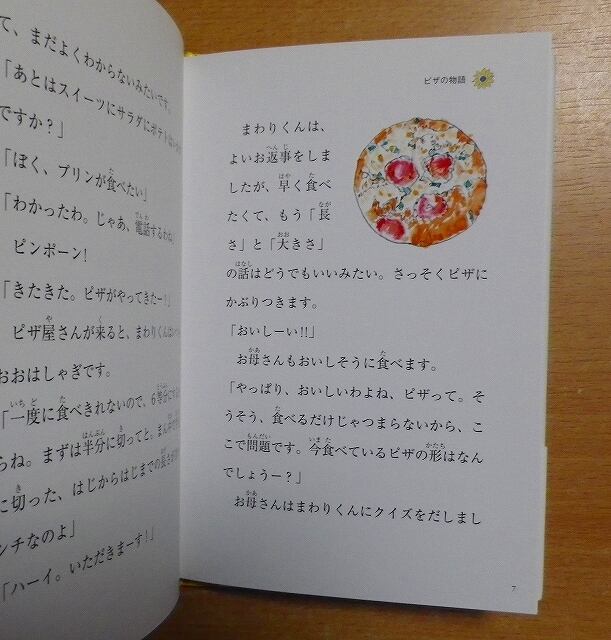 て、まだよくわからないみたいです。
「あとはスイーツにサラダにポテト
ですか？」
「ぼく、プリンが食べたい」
「わかったわ。じゃあ、電話するわね」
ピンポーン！
「きたきた。ピザがやってきたー！」
ピザ屋さんが来ると、まわりくんは
おおはしゃぎです。
「一度に食べきれないので、6等分に
らね。まずは半分に切ってと。まん
に切った、はじからはじまでの長さが
ンチなのよ」
「ハーイ。いただきまーす！」
ピザの物語
まわりくんは、
よいお返事をしま
したが、早く食べ
たくて、もう「長
さ」と「大きさ」
の話はどうでもいいみたい。さっそくピザに
かぶりつきます。
「おいしーい!!」
お母さんもおいしそうに食べます。
「やっぱり、おいしいわよね、ピザって。そ
うそう、食べるだけじゃつまらないから、こ
こで問題です。今食べているピザの形はなん
でしょうー？」
お母さんはまわりくんにクイズをだしまし
7